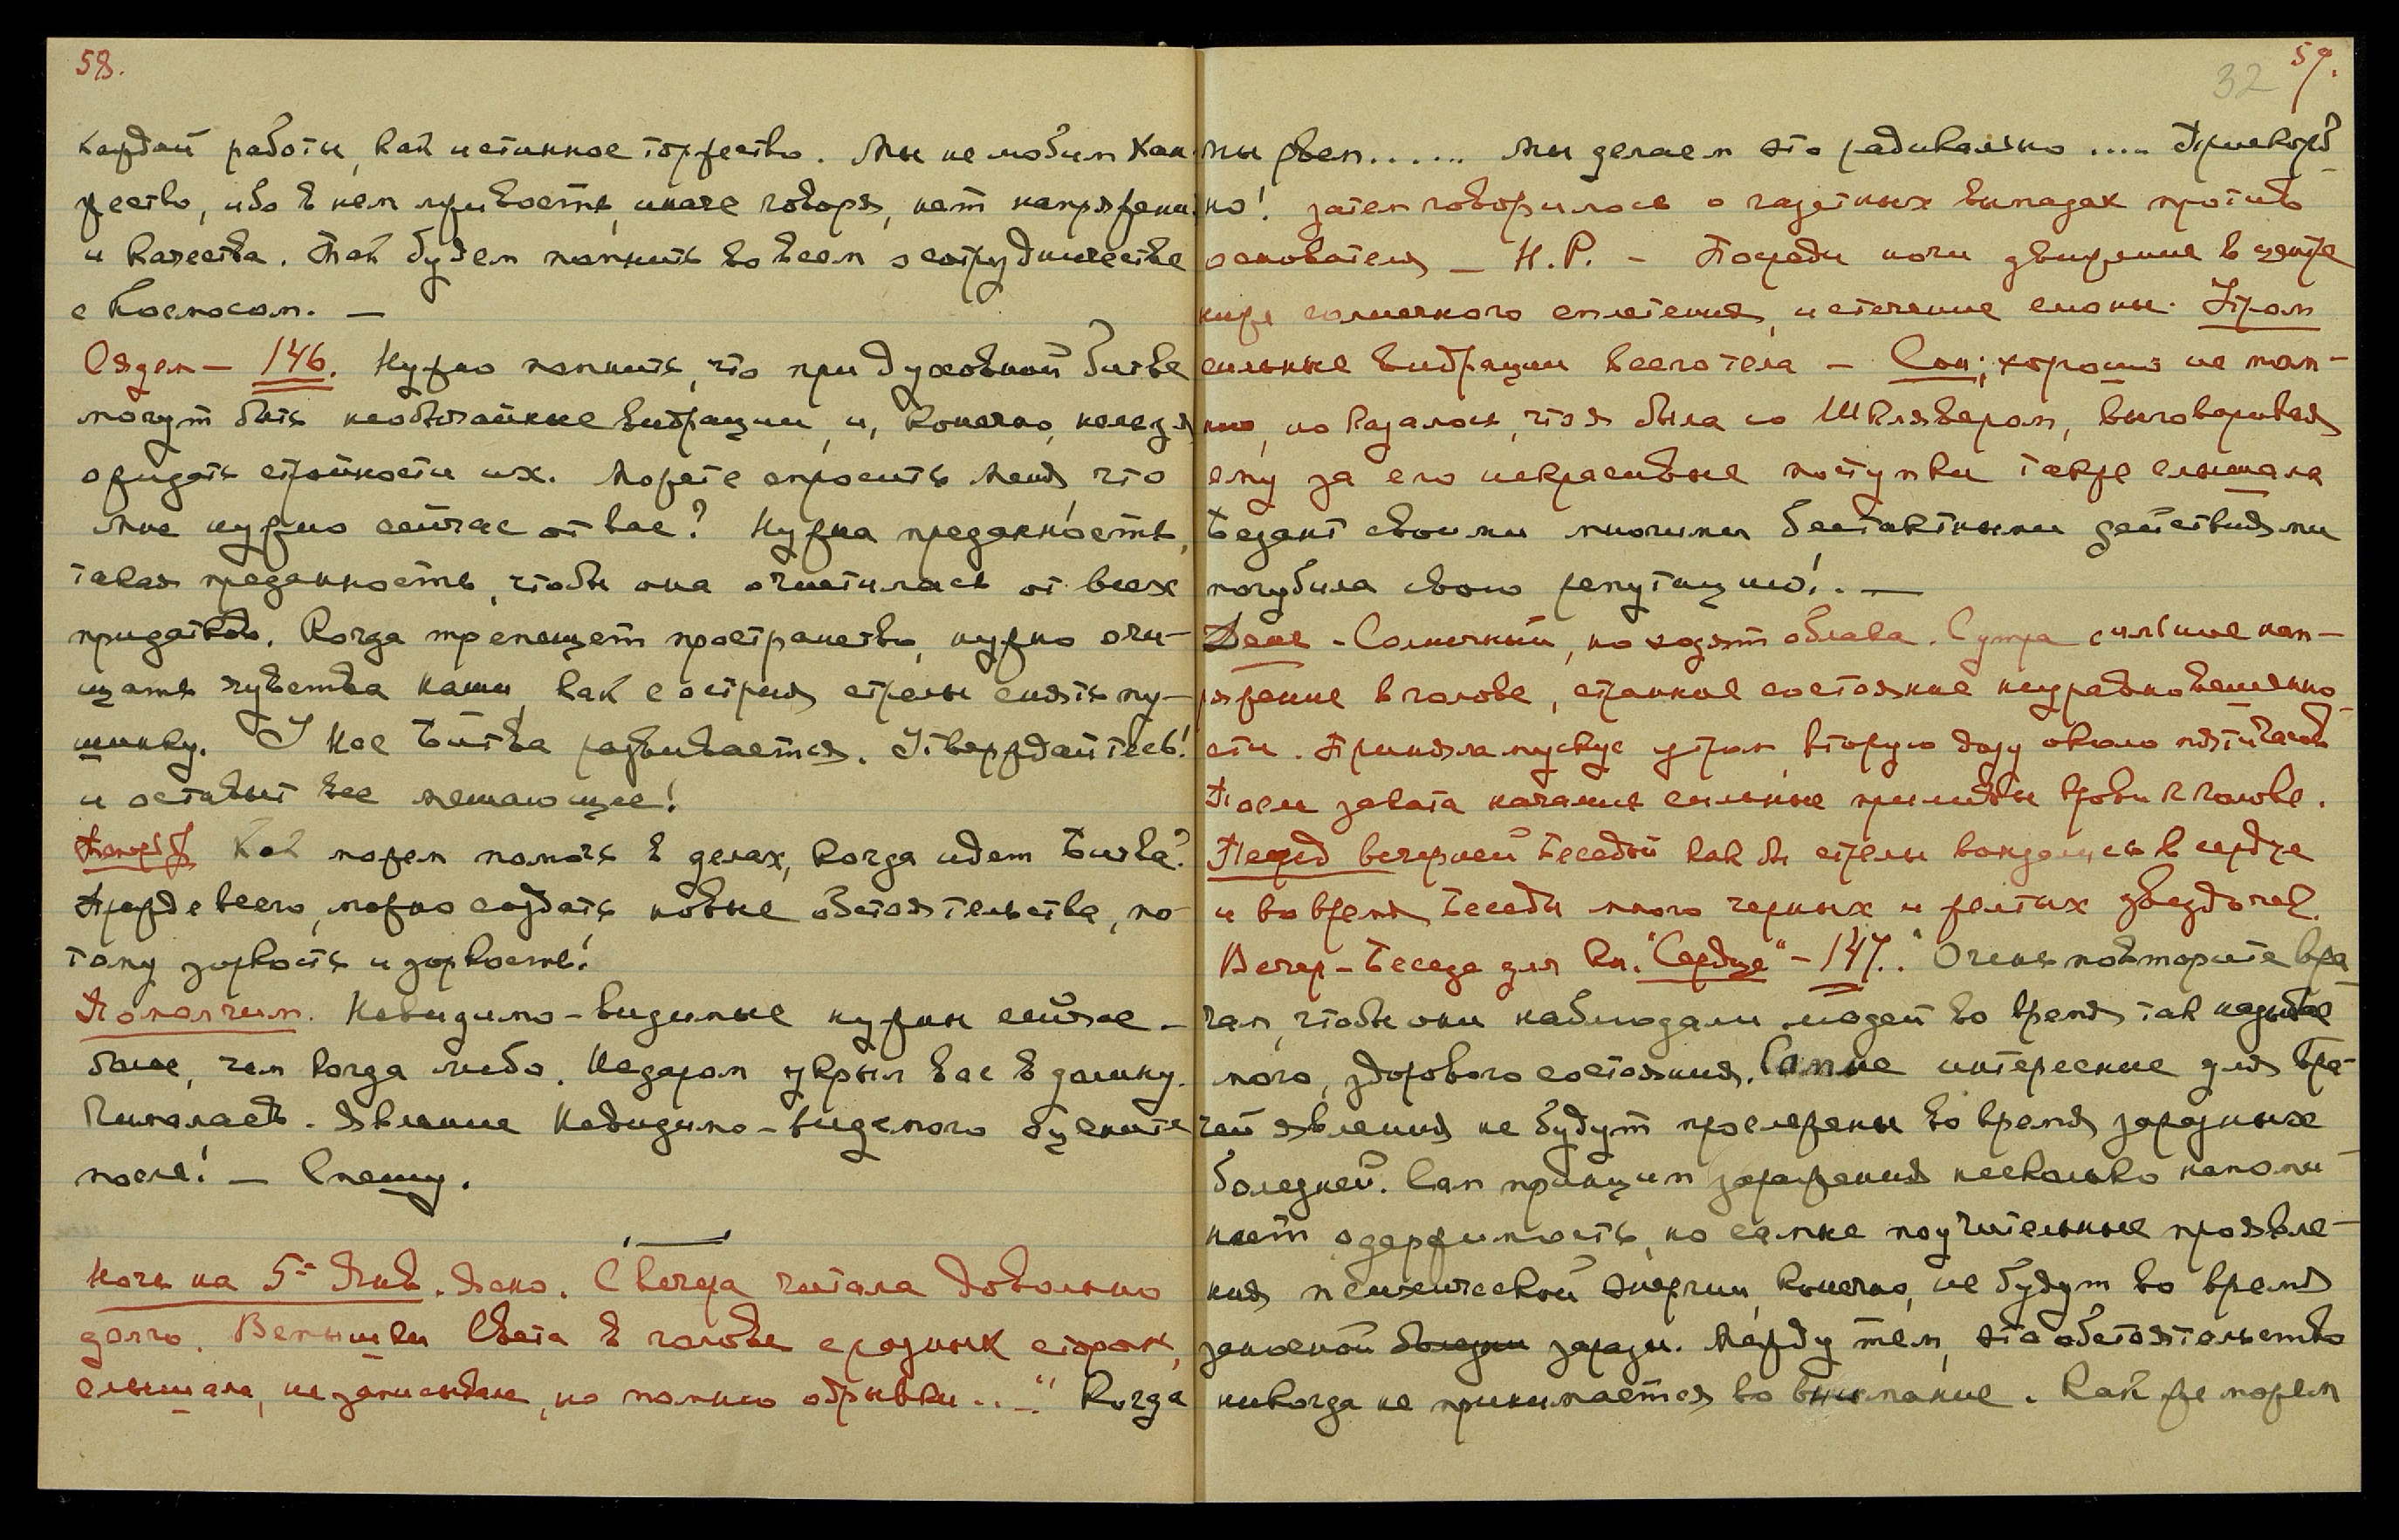 58.
каждой работы, как истинное торжество. Мы не любим хан-
жество, ибо в нем лживость, иначе говоря, нет напряжения
и качества. Так будем помнить во всем о сотрудничестве
с Космосом. —
Сядем — 146. Нужно помнить, что при духовной битве
могут быть необычайные вибрации, и, конечно, нельзя
ожидать стройности их. Можете спросить Меня, что
Мне нужно сейчас от вас? Нужна преданность,
такая преданность, чтобы она очистилась от всех
придатков. Когда трепещет пространство, нужно очи-
щать чувства наши, как с острия стрелы снять пу-
шинку. У Нас Битва развивается. Утвердитесь!
и оставьте все мешающее!
Как можем помочь в делах, когда идет Битва?
Прежде всего, можно создать новые обстоятельства, по-
тому зоркость и зоркость!
Помолчим. Невидимо-видимые нужны сейчас —
более, чем когда либо. Недаром укрыл вас в долину.
Явление Невидимо-видимого оцените
после! — Спешу.
Ночь на 5-е Янв. Ясно. С вечера читала довольно
долго. Вспышки Света в голове с разных сторон,
слышала, не записывала, но помню обрывки... — " Когда
59.
32
мы рвем...... мы делаем это радикально..... Прискорб-
но! Затем говорилось о газетных выпадах против
основателя — Н.Р. — Посреди ночи движение в центре
ниже солнечного сплетения, истечение слюны. Утром
сильные вибрации всего тела — Сон; хорошо не пом-
ню, но казалось, что я была со Шклявером, выговаривая
ему за его некрасивые поступки также слышала
Безант своими многими бестактными действиями
погубила свою репутацию!. —
День — Солнечный, но ходят облака. С утра сильное нап-
ряжение в голове, странное состояние неуравновешенно-
сти. Приняла мускус утром, вторую дозу около пяти часов
После заката начались сильные приливы крови к голове.
Перед вечерней Беседой как бы стрелы вонзались в сердце
и во время Беседы много черных и желтых звездочек.
Вечер — Беседа для кн. "Сердце" — 147. " Очень повторите вра-
чам, чтобы они наблюдали людей во время так называе-
мого, здорового состояния. Самые интересные для вра-
чей явления не будут прослежены во время заразных
болезней. Сам принцип заражения несколько напоми-
нает одержимость, но самые поучительные проявле-
ния психической энергии, конечно, не будут во время
заносной болезни заразы. Между тем, это обстоятельство
никогда не принимается во внимание. Как же можем